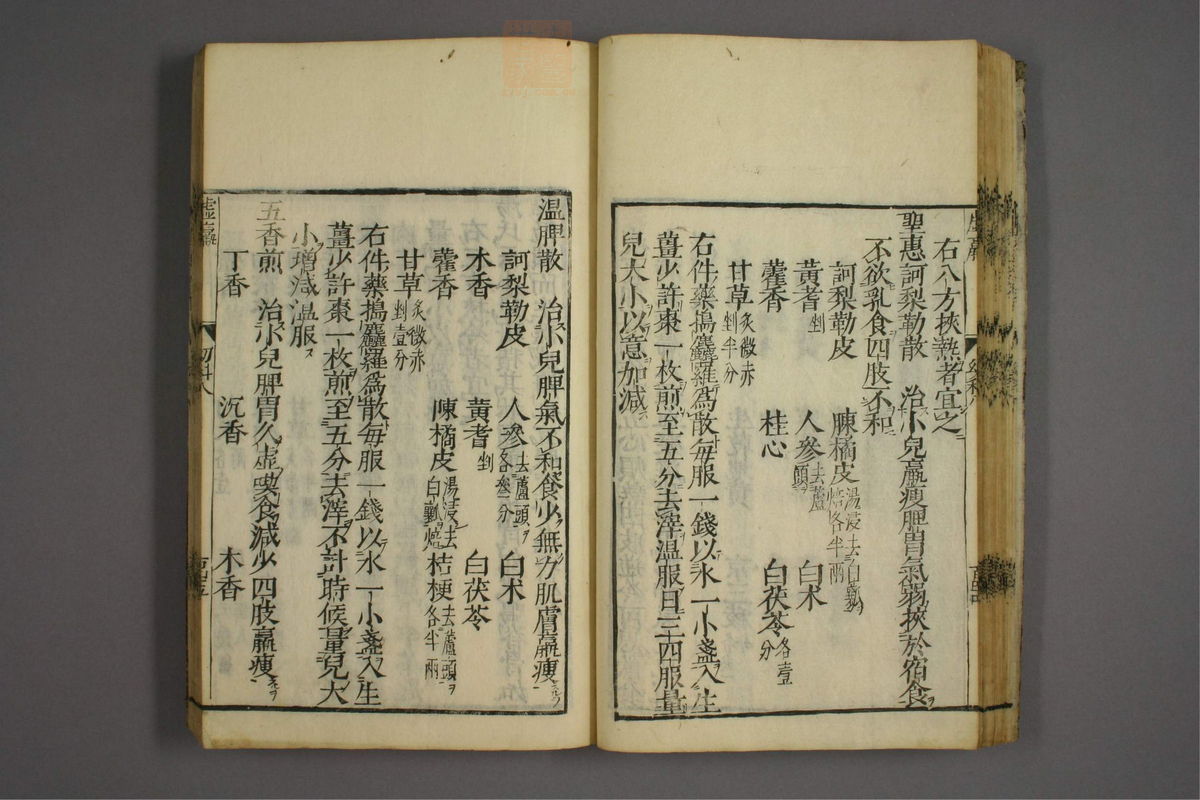 右八方挾熱者宜之
聖惠訶梨勒散 治小兒羸瘦脾胃氣弱挾於宿食
不欲乳食四肢不和
訶梨勒皮 陳橘皮湯浸去白瓤焙各半兩
黃耆剉 人參去蘆頭 白朮
藿香 桂心 白茯苓各壹分
甘草炙微赤剉半分
右件藥搗麤羅爲散每服一錢以水一小盞入生
薑少許棗一枚煎至五分去滓溫服日三四服量
兒大小以意加減
溫脾散 治小兒脾氣不和食少無力肌膚羸瘦
訶梨勒皮 人參去蘆頭各叁分 白朮
木香 黃耆剉 白茯苓
藿香 陳橘皮湯浸去白瓤焙 桔梗去蘆頭各半兩
甘草炙微赤剉壹分
右件藥搗麤羅爲散每服一錢以水一小盞入生
薑少許棗一枚煎至五分去滓不計時候量兒大
小增減溫服
五香煎 治小兒脾胃久虛喫食減少四肢羸瘦
丁香 沉香 木香
虛羸 幼科八